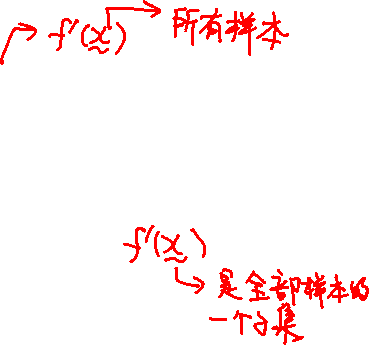 f'(x) 所有样本
f'(x)
是全部样本的
一个子集